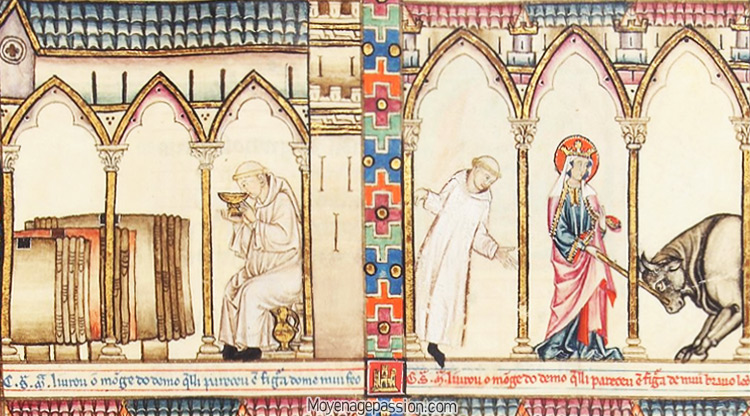 C. S. M. liurou o mõge do demo q̃lli pareceu ẽ figa dome mui feo
C. S. M. liurou o mõge do demo q̃lli pareceu ẽ figa de mui brauo
Moyenagepassion.com